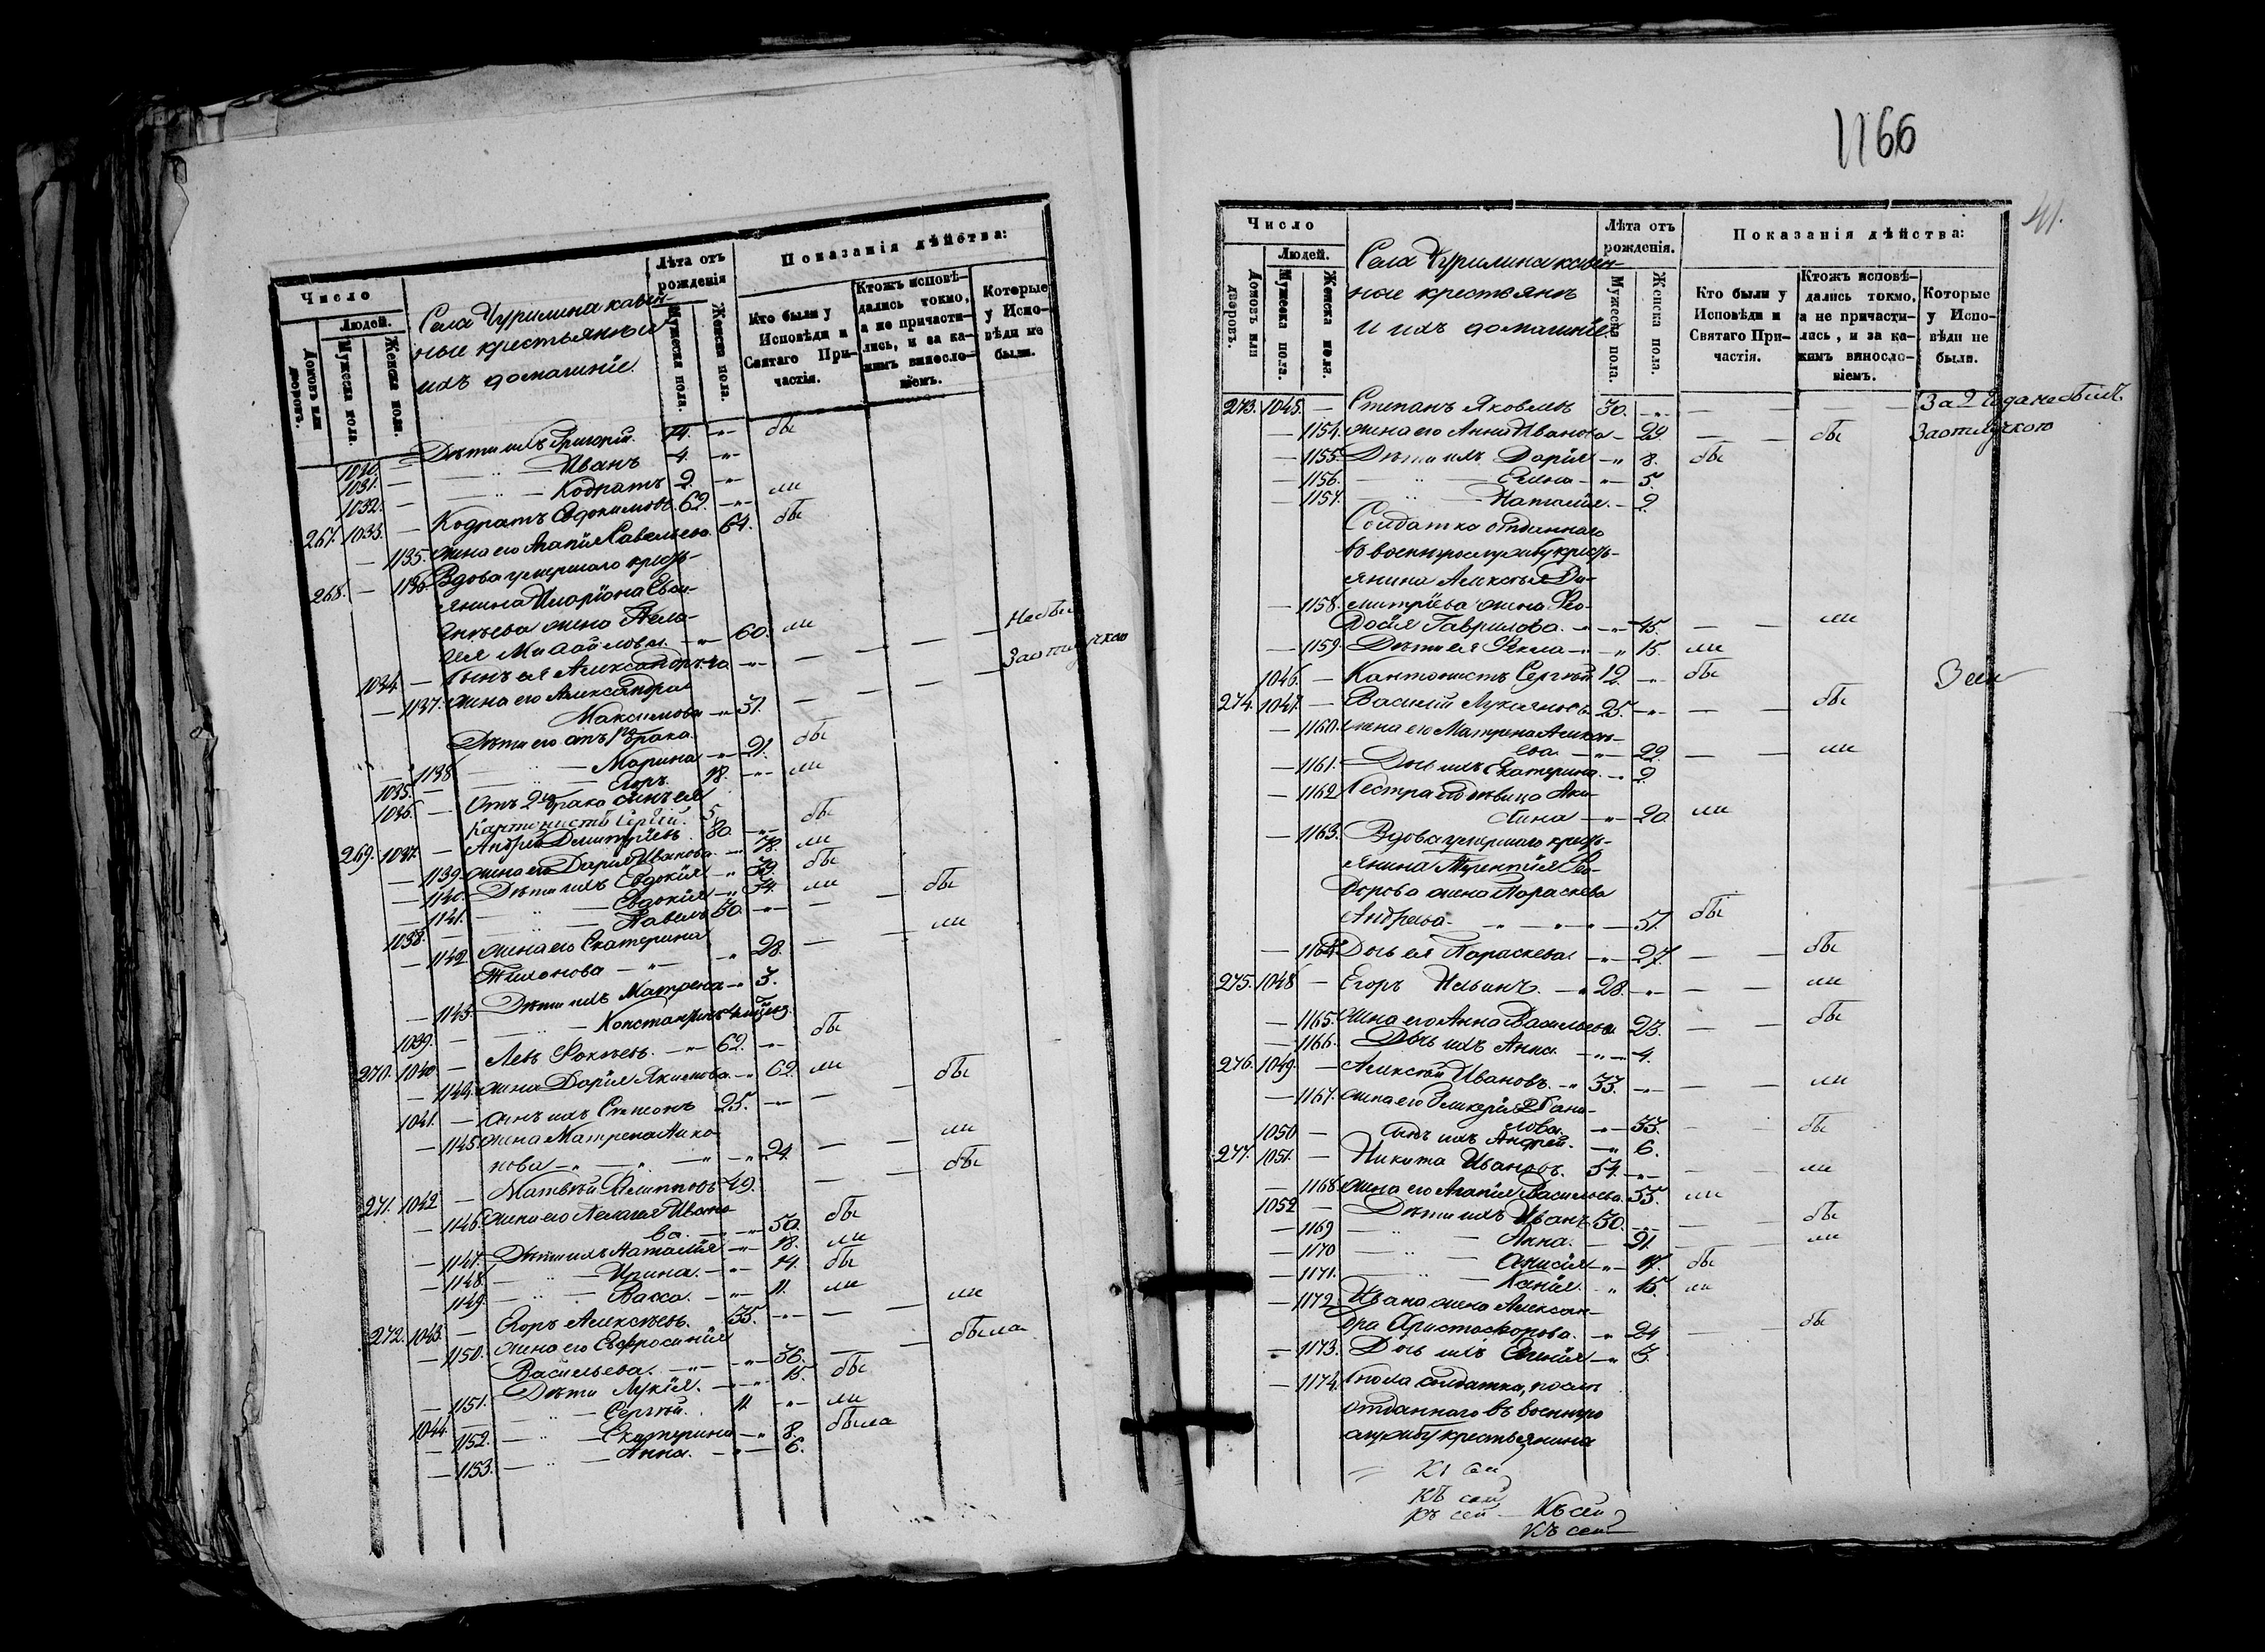 Число
Людей.
Домовъ или дворовъ.
Мужеска пола.
Женска пола.
Села Чурилина казен-
ные крестьяне и
ихъ домашніе.
Лѣта отъ рожденія
Мужеска пола.
Женска пола.
Показанія дѣйства:
Кто были у Исповѣди и Святаго При-частія.
Ктожъ исповѣ-дались токмо, а не причасти-лись, и за ка-кимъ винословіемъ.
Которые у Испо-вѣди не были.
1030. — Дѣти ихъ Григорій. 14. —"— бы
1031. — —"— Иванъ 4. —"—
1032. — —"— Кодратъ 2. —"— ли
267. 1033. — Кодратъ Евдокимовъ. 62. —"— бы
— 1135. жена его Агапія Савельева. 64.
268. — 1136. Вдова умершаго кресть-
янина Иларіона Евси-
гнѣева жена Пела-
гея —"— 60. ли
1034. — Сынъ ея Александръ —"— — — — Не бы
— 1137. жена его Александра За отлучкою
Максимова —"— 31.
Дѣти его отъ 1го брака.
— 1138. —"— Марина —"— 21. бы
1035. — —"— Егоръ. 18. —"— ли
1036. — Отъ 2го брака сынъ ея
Кантонистъ Сергій. 5.
269. 1037. — Андрей Дмитріевъ. 80. —"— бы
— 1139. жена его Дарія Иванова. —"— 78. ли
— 1140. Дѣти ихъ Евдокія —"— 39. бы
— 1141. —"— Евдокія —"— 34. ли
1038. — —"— Павелъ 30. —"— — — бы
— 1142. жена его Екатерина
Тихонова —"— —"— 28. — ли
— 1143. Дѣти ихъ Матрена —"— 3.
1039. — —"— Константинъ
270. 1040. — Левъ Фокѣевъ. —"— 62. —"— бы
— 1144. жена Дарія Якимова. —"— 62. ли
1041. — сынъ ихъ Симеонъ 25. —"— — — бы
— 1145. жена Матрена
нова —"— —"— 24. — ли
271. 1042. — Матвѣй Филипповъ 49. — — бы
— 1146. жена его Пелагея Ивано-
ва. —"— 50. бы
— 1147. Дѣти ихъ Наталія —"— 18. ли
— 1148. —"— Ирина. —"— 14. бы
1149. —"— Васса. —"— 11. ли
272. 1043. — Егоръ Алексѣевъ. 35. —"— — — ли
— 1150. жена его Евфросинія
Васильева. —"— —"— 36. — — была
— 1151. Дѣти Лукія. —"— 15. бы
1044. — —"— Сергѣй. 11 —"— ли
— 1152. —"— Екатерина —"— 8. была
— 1153. —"— Анна. —"— 6.
1166
41.
Число
Людей.
Домовъ или дворовъ.
Мужеска пола.
Женска пола.
Села Чурилина казен-
ные крестьянѣ
и ихъ домашніе.
Лѣта отъ рожденія.
Мужеска пола.
Женска пола.
Показанія дѣйства:
Кто были у Исповѣди и Святаго При-частія.
Ктожъ исповѣ-дались токмо, а не причасти-лись, и за ка-кимъ винословіемъ.
Которые у Испо-вѣди не были.
273. 1045. — Степанъ Яковлевъ 30. —"— — — За 2 года не былъ
— 1154. жена его Анна Иванова — 29. — — бы За отлучкою
— 1155. Дѣти ихъ Дарія —"— 8. бы
— 1156. —"— Елена —"— 5.
— 1157. —"— Наталія. — 2.
Солдатка отданнаго
въ военную службу кресть-
янина Алексѣя Ди-
— 1158. митріева жена Фео-
досія Гаврилова. —"— 45. — — ли
— 1159. Дѣти ея Фекла —"— 15. ли
1046. — Кантонистъ Сергѣй 12 —"— бы
274. 1047. — Василій Лукияновъ 25. —"— — — бы
— 1160. жена его Матрена Алексѣ-
ева. —"— 22. — — ли
— 1161. Дочь ихъ Екатерина. —"— 2.
— 1162 Сестра его дѣвица Аки-
лина —"— 20. ли
— 1163. Вдова умершаго кресть-
янина Терентія Фео-
дорова жена Параскева
Андреева —"— —"— 51. бы
— 1164. Дочь ея Параскева. —"— 27. — — бы
275. 1048. — Егоръ Ильинъ. —"— 28. —"— — — ли
— 1165. жена его Анна Васильева 23. — — бы
— 1166. Дочь ихъ Анна. —"— 4.
276. 1049. — Алексѣй Ивановъ. —"— 33. —"— — — ли
— 1167. жена его Гликерія
лова. —"— 33. — — бы
1050 — сынъ ихъ Андрей. —"— 6.
277. 1051. — Никита Ивановъ. 54. —"— — — ли
— 1168. жена его Агапія Васильева. 55. ли
1052 — Дѣти ихъ Иванъ 30. —"— — — бы
— 1169 —"— Анна. — 21. — — ли
— 1170 —"— Анисія —"— 17. бы
— 1171. —"— Ксенія. —"— 15. ли
— 1172. Ивана жена Алексан-
дра Христофорова. —"— 24 — — бы
— 1173. Дочь ихъ —"— 3.
— 1174. солдатка, послѣ
отданнаго въ военную
службу крестьянина
Къ сей
Къ сей
Къ сей — Къ сей
Къ сей